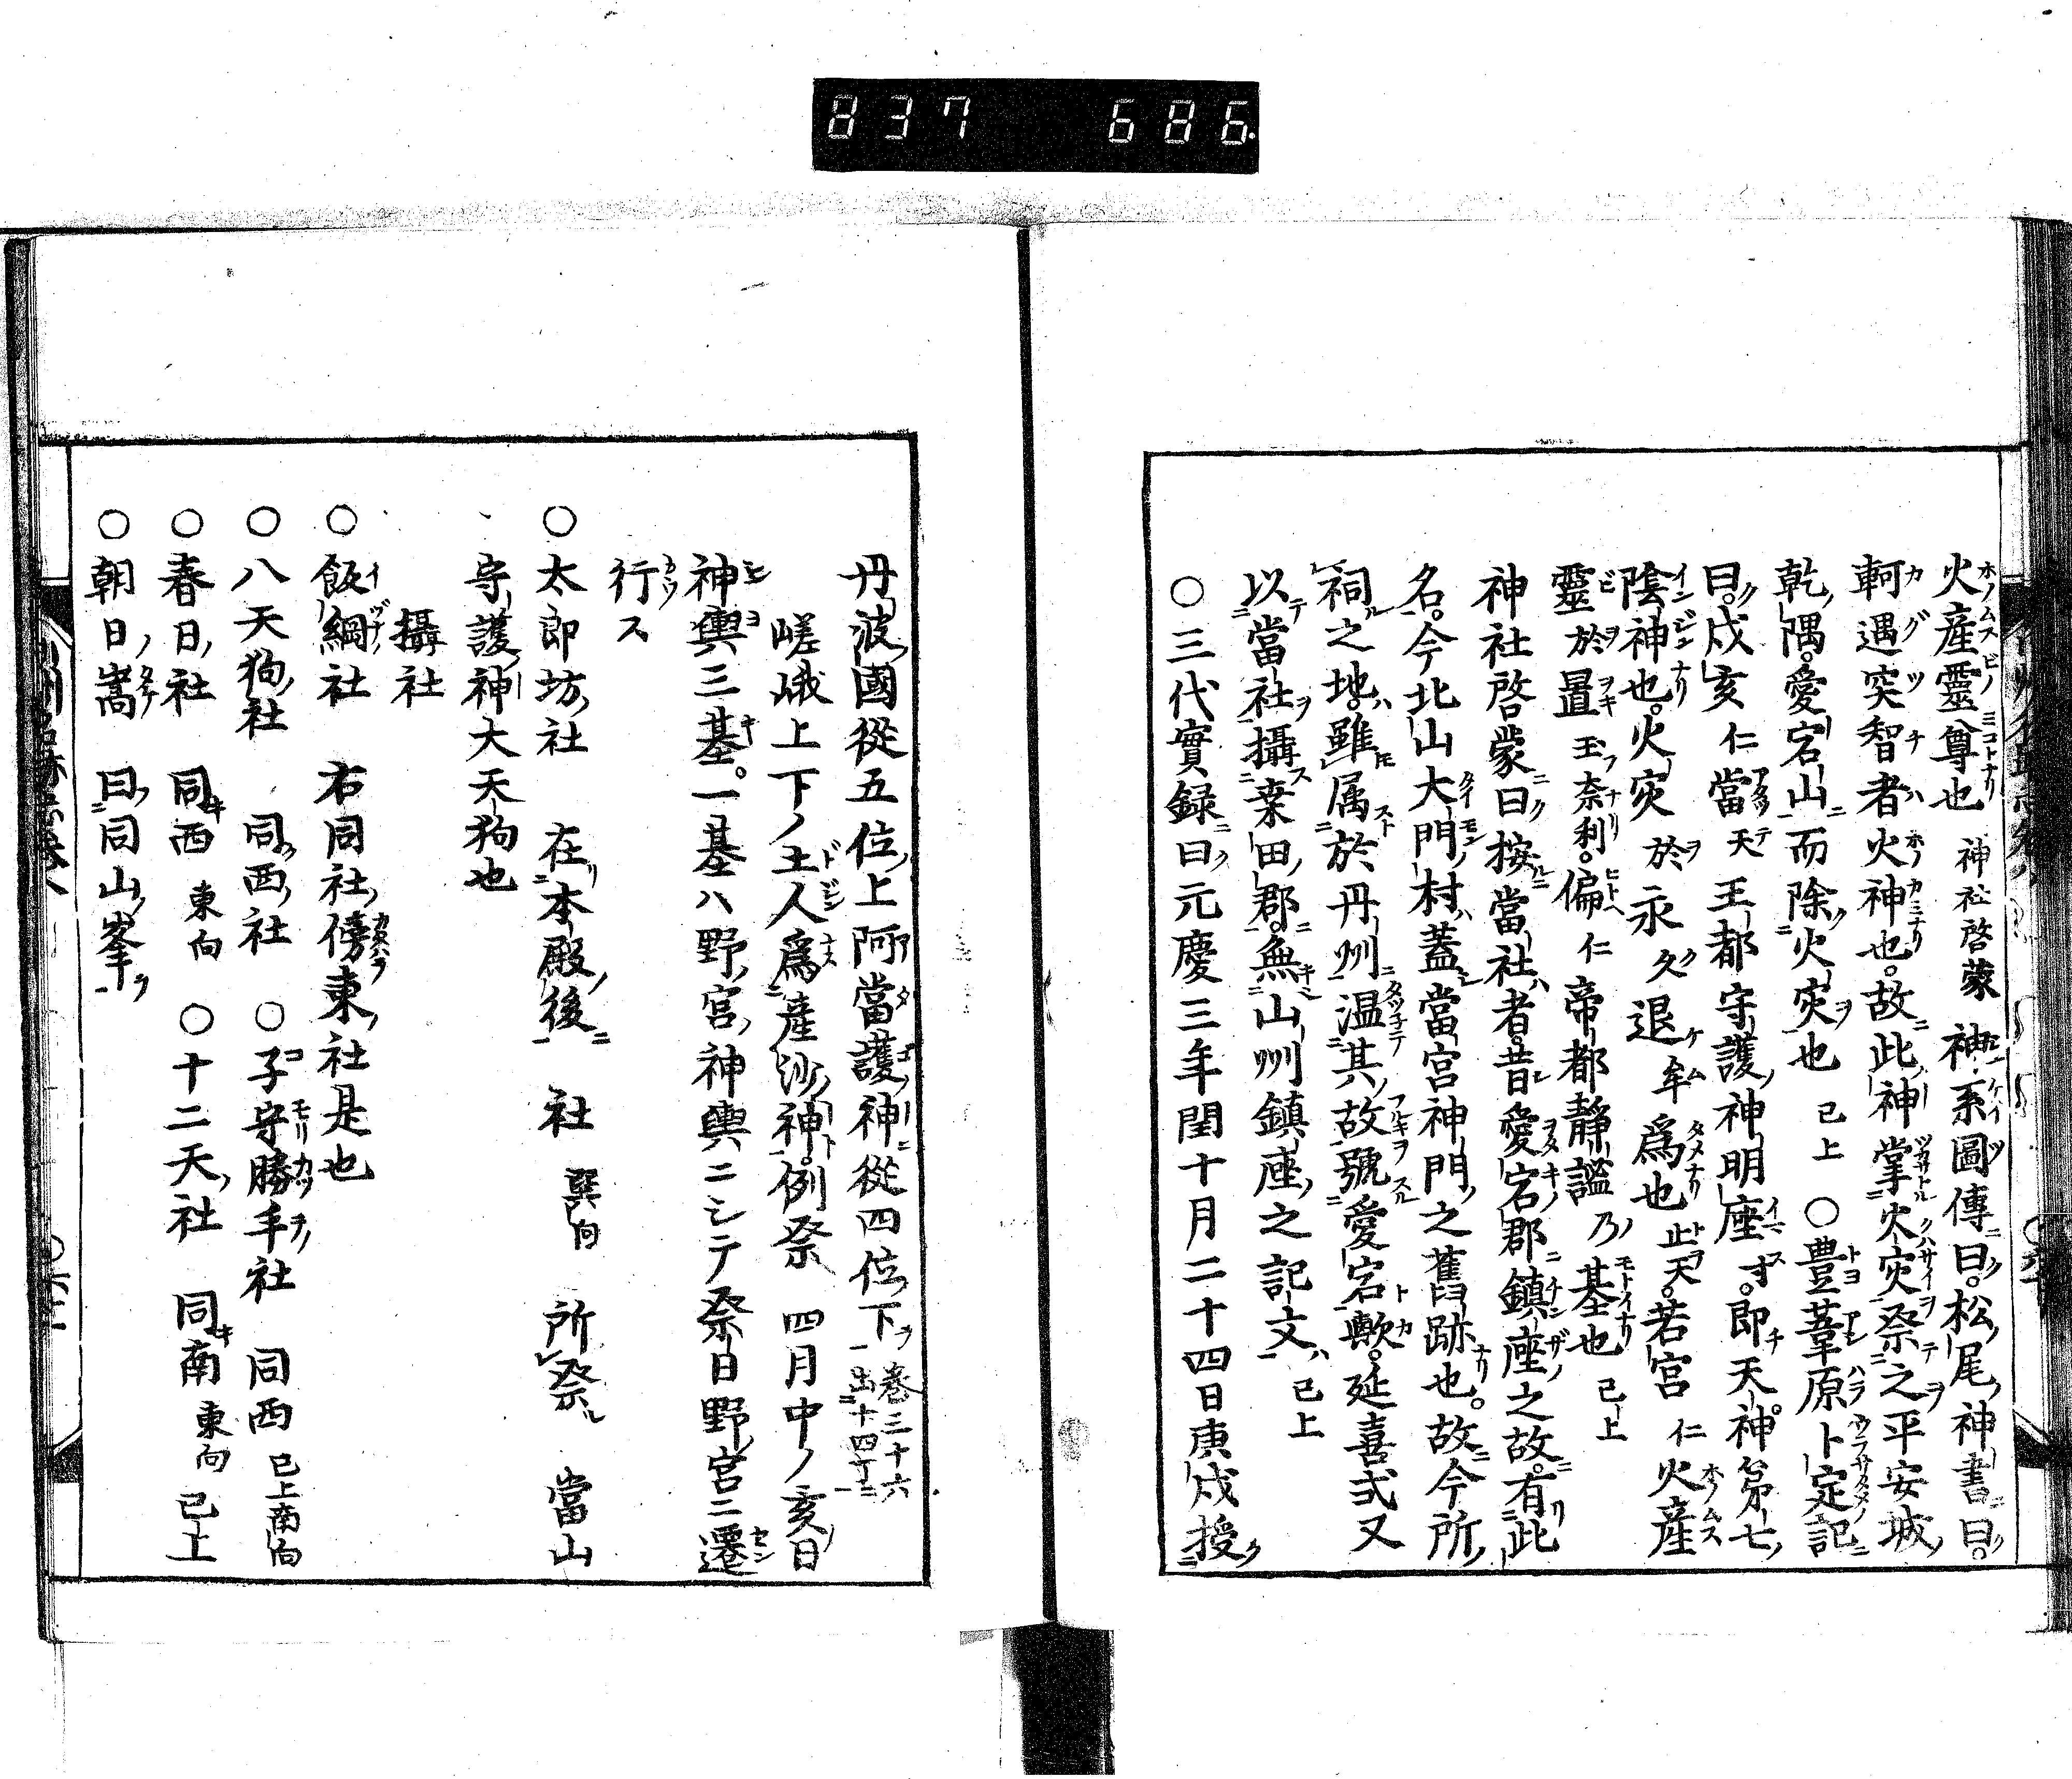 837 686.
火産靈尊也 神社啓蒙 神系圖傳曰。松尾神書曰。
軻遇突智者火神也。故此神掌火灾祭之平安城
乾隅。愛宕山而除火灾也 已上 ○豊葦原卜定記
曰。戌亥仁當天王都守護神明座す。即天神第七
陰神也。火灾於永久退牟爲也止天。若宮仁火産
靈於置玉奈利。偏仁帝都靜謐乃基也 已上
神社啓蒙曰按當社者。昔愛宕郡鎮座之故。有此
名。今北山大門村蓋當宮神門之舊跡也。故今所
祠之地。雖属於丹州温其故號愛宕歟。延喜式又
以當社攝桒田郡。無山州鎮座之記文 已上
○三代實録曰元慶三年閏十月二十四日庚戌授
丹波國從五位上阿當護神從四位下 卷三十六出十四丁
嵯峨上下ノ土人爲産沙神。例祭 四月中ノ亥日
神輿三基。一基ハ野宮神輿ニシテ祭日野宮ニ遷
行ス
○太郎坊社 在本殿後 社 巽向 所祭 當山
守護神大天狗也
攝社
○飯綱社 右同社傍東社是也
○八天狗社 同西社 ○子守勝手社 同西 已上南向
○春日社 同西 東向 ○十二天社 同南 東向 已上
○朝日嵩 曰同山峯